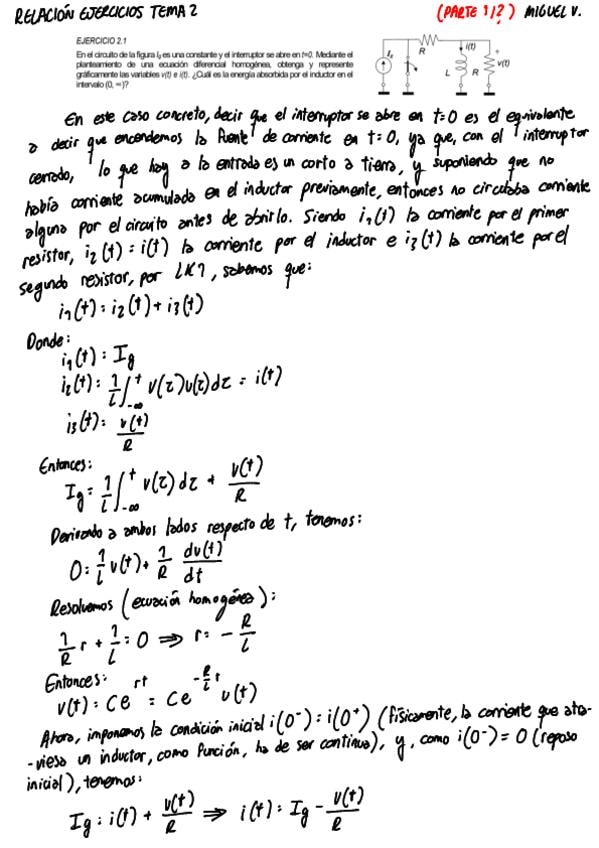 RELACIÓN EJERCICIOS TEMA 2 (PARTE 1/?) MIGUEL V.
EJERCICIO 2.1
En el circuito de la figura Ig es una constante y el interruptor se abre en t=0. Mediante el
planteamiento de una ecuación diferencial homogénea, obtenga y represente
gráficamente las variables v(t) e i(t). ¿Cuál es la energía absorbida por el inductor en el
intervalo (0, ∞)?
Ig R i(t) L R + v(t) -
En este caso concreto, decir que el interruptor se abre en t=0 es el equivalente
a decir que encendemos la fuente de corriente en t=0, ya que, con el interruptor
cerrado, lo que hay a la entrada es un corto a tierra, y suponiendo que no
había corriente acumulada en el inductor previamente, entonces no circulaba corriente
alguna por el circuito antes de abrirlo. Siendo i1(t) la corriente por el primer
resistor, i2(t) = i(t) la corriente por el inductor e i3(t) la corriente por el
segundo resistor, por LK1, sabemos que:
i1(t) = i2(t) + i3(t)
Donde:
i1(t) = Ig
i2(t) = 1/L ∫_{-∞}^{t} v(τ)u(τ)dτ = i(t)
i3(t) = v(t)/R
Entonces:
Ig = 1/L ∫_{-∞}^{t} v(τ)dτ + v(t)/R
Derivando a ambos lados respecto de t, tenemos:
0 = 1/L v(t) + 1/R dv(t)/dt
Resolvemos (ecuación homogénea):
1/R r + 1/L = 0 ⇒ r = - R/L
Entonces:
v(t) = Ce^{rt} = Ce^{-R/L t} u(t)
Ahora, imponemos la condición inicial i(0⁻) = i(0⁺) (físicamente, la corriente que atra-
-viesa un inductor, como función, ha de ser continua), y, como i(0⁻) = 0 (reposo
inicial), tenemos:
Ig = i(t) + v(t)/R ⇒ i(t) = Ig - v(t)/R